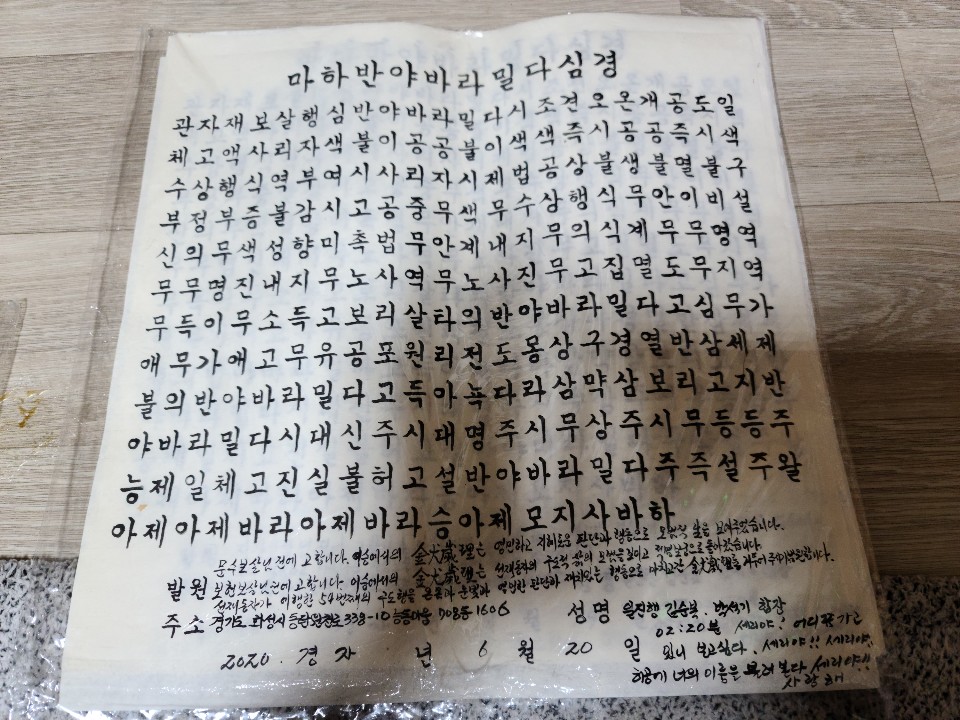 마하반야바라밀다심경
관자재보살행심반야바라밀다시조견오온개공도일
체고액사리자색불이공공불이색색즉시공공즉시색
수상행식역부여시사리자시제법공상불생불멸불구
부정부증불감시고공중무색무수상행식무안이비설
신의무색성향미촉법무안계내지무의식계무무명역
무무명진내지무노사역무노사진무고집멸도무지역
무득이무소득고보리살타의반야바라밀다고심무가
애무가애고무유공포원리전도몽상구경열반삼세제
불의반야바라밀다고득아뇩다라삼먁삼보리고지반
야바라밀다시대신주시대명주시무상주시무등등주
능제일체고진실불허고설반야바라밀다주즉설주왈
아제아제바라아제바라승아제모지사바하
문수보살님 전에 고합니다. 이승에서의 金犬歲理는 영민하고 지혜로운 판단과 행동으로 모범적 삶을 보여주었습니다.
발원 보현보살님 전에 고합니다. 이승에서의 金犬歲理는 선재동자의 구도적 삶의
선재동자가 이행한 54번째의 구도행을 판단과 행동으로 金犬歲理를
주소 경기도 화성시 동탄 339-10 능동마을 708동 1606 성명 김순복. 합장
02:20분 세리야! 어디쯤 가고
2020. 경자 년 6 월 20 일 있니 보고싶다. 세리야!! 세리야!!
허공에 너의 이름을 불러 본다 세리야!!
사랑해